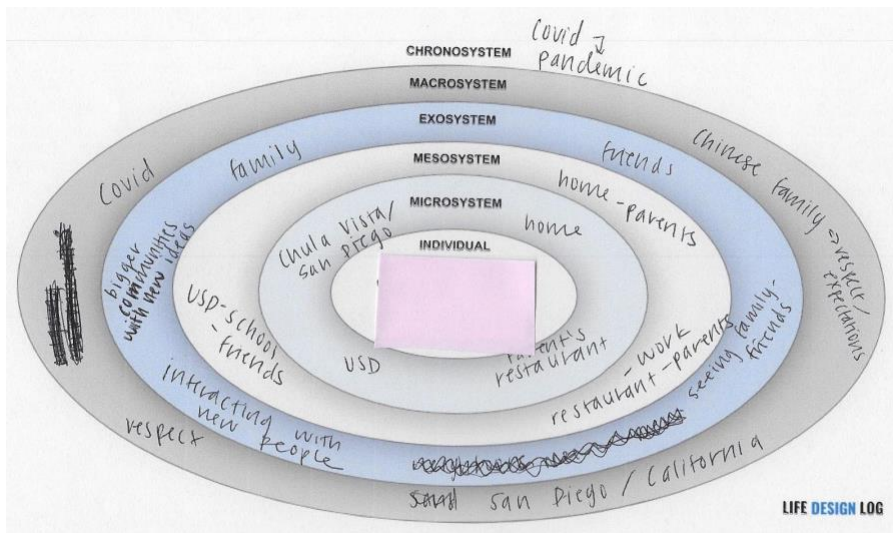 Covid →
pandemic
CHRONOSYSTEM
MACROSYSTEM
Covid
Chinese family → respect/
expectations
respect
San Diego / California
EXOSYSTEM
family
friends
bigger
communities
with new ideas
interacting with
new people
seeing family-
friends
MESOSYSTEM
home-parents
USD-school
-friends
-work
restaurant-parents
MICROSYSTEM
Chula Vista/
San Diego
home
USD
parent's
restaurant
INDIVIDUAL
LIFE DESIGN LOG